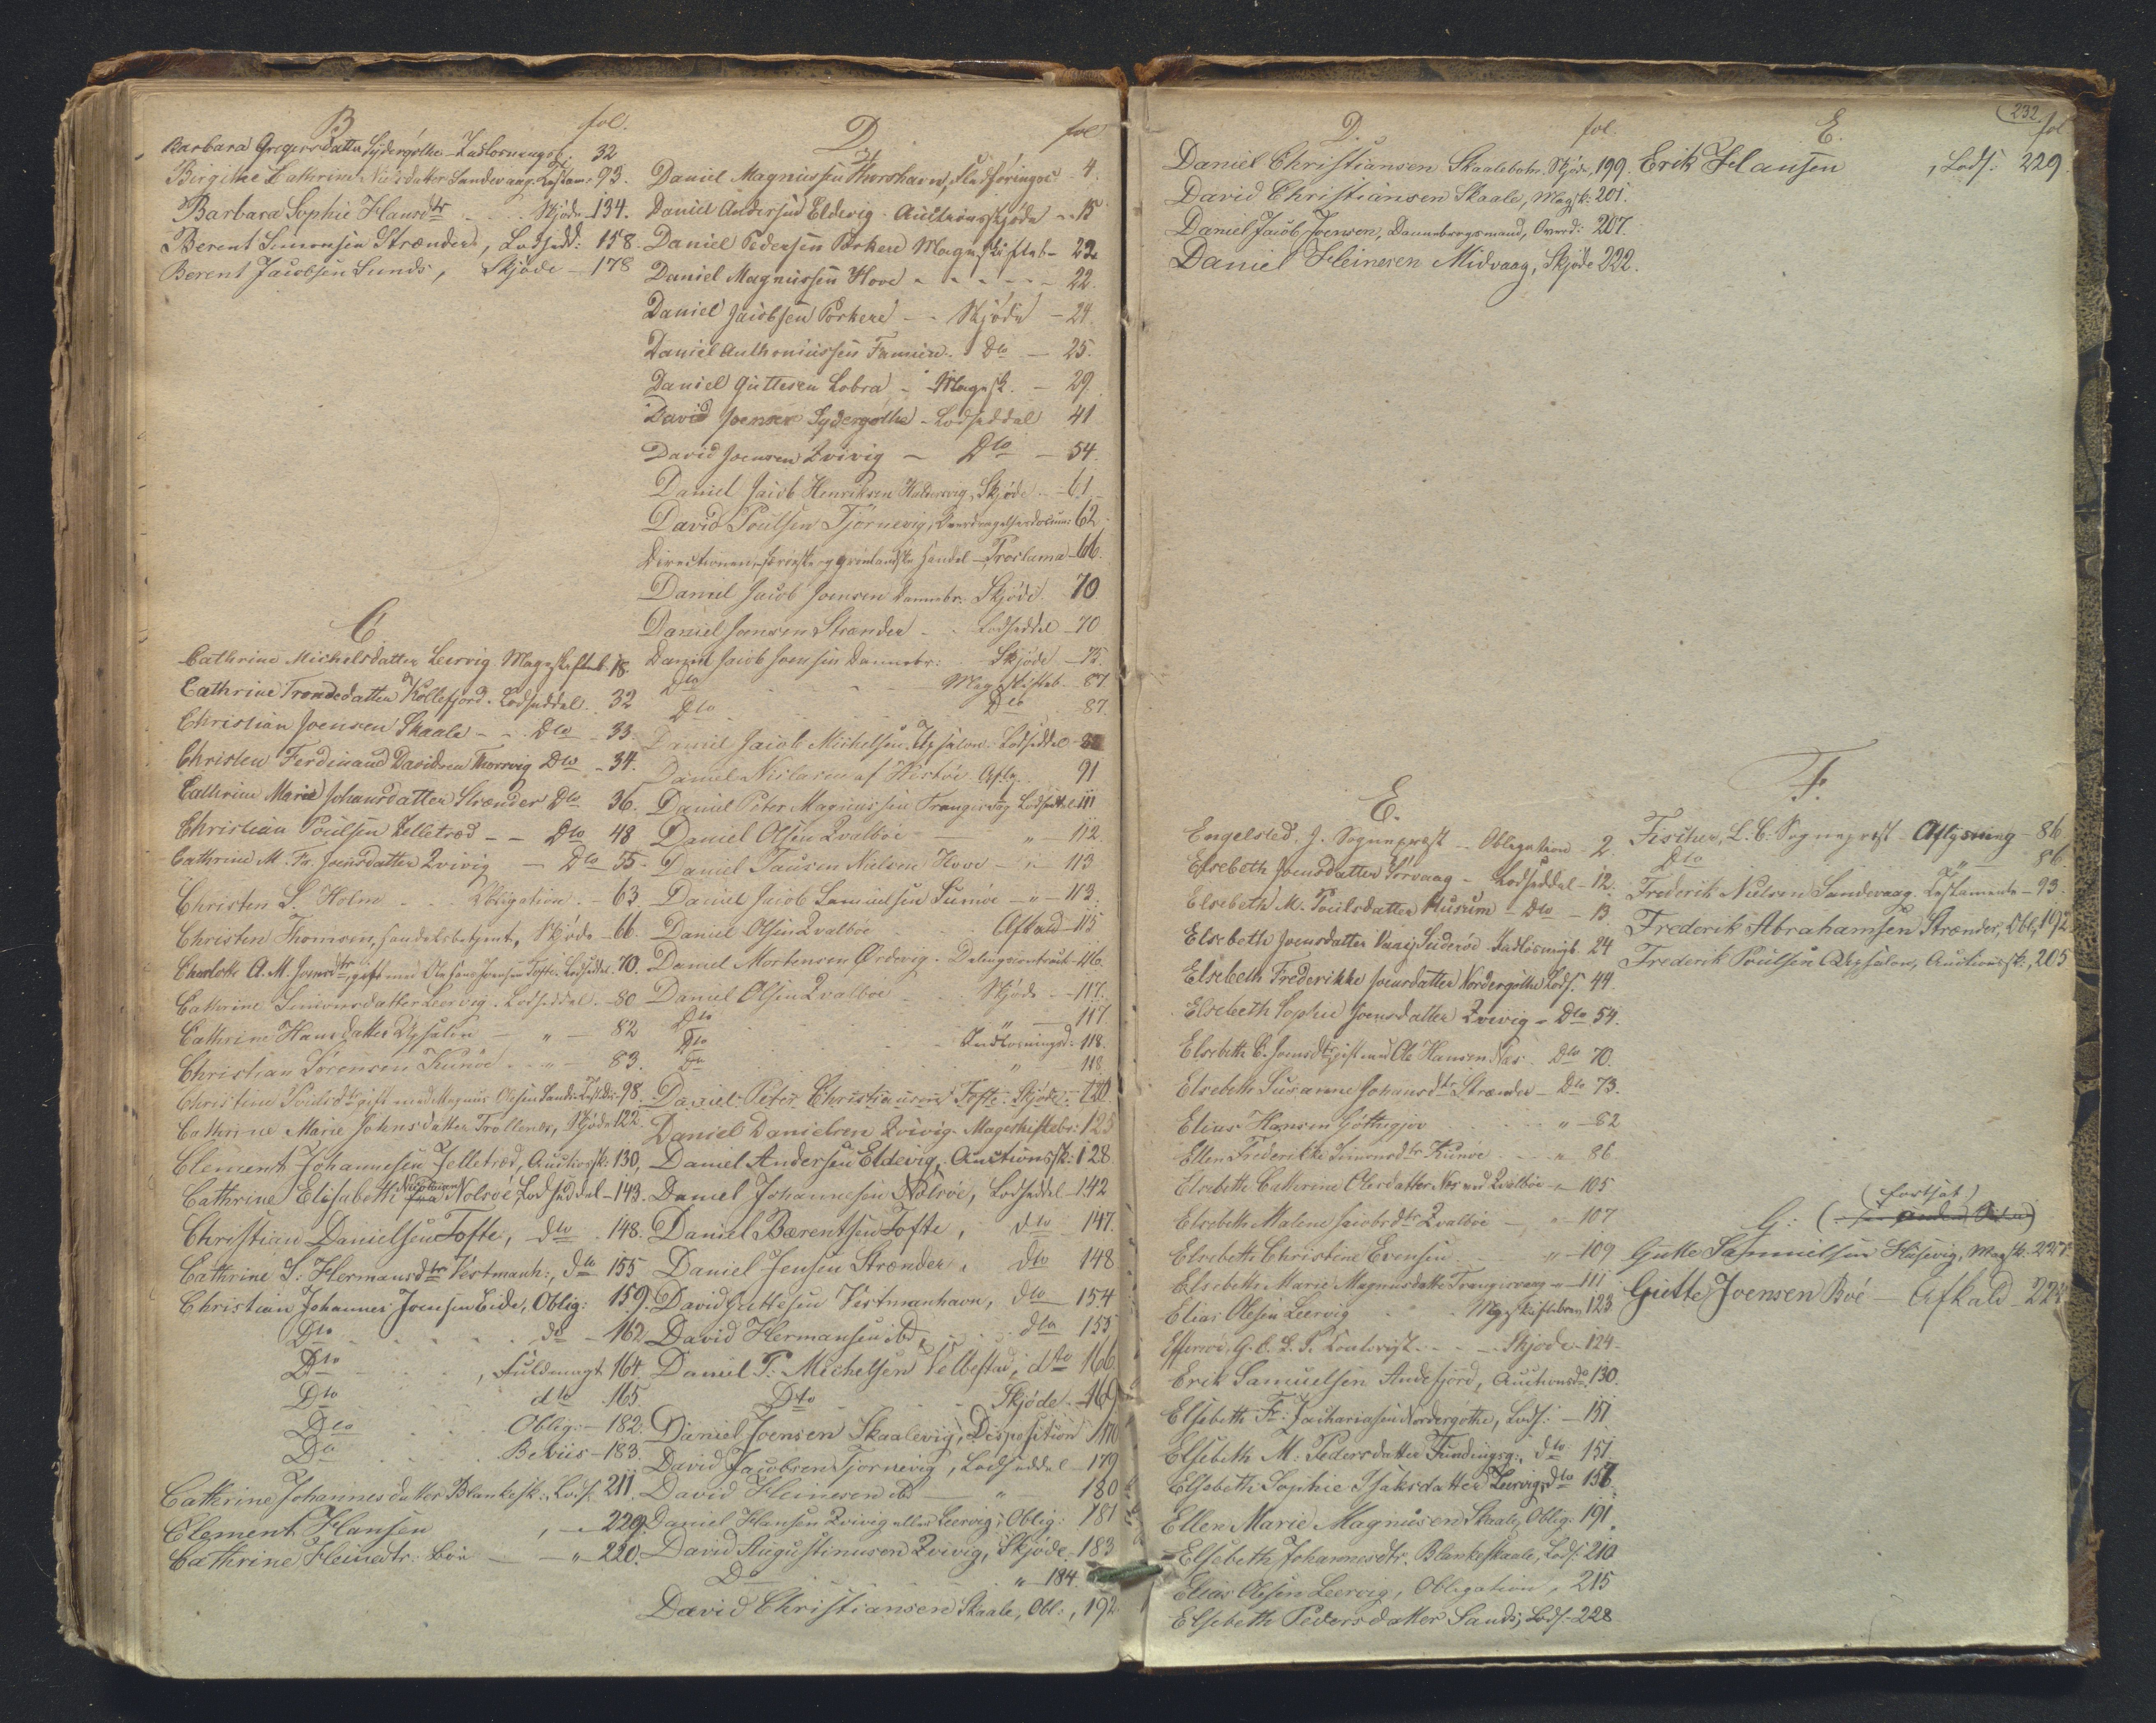 B fol.
Barbara Gregersdatter Sydergøthe - Indløsningsr. 32
Birgithe Cathrine Nielsdatter Sandevaag. Testam: 93.
Barbara Sophie Hansdtr - Skjøde 134.
Berent Simonsen Strænder, Lodsedd: 158.
Berent Jacobsen Sunds, Skjøde - 178
C
Cathrine Michelsdatter Leervig Mageskifteb. 18.
Cathrine Trondedatter Kollefjord. Lodseddel. 32
Christian Joensen Skaale - - Dto - 33.
Christen Ferdinand Davidsen Thorsvig Dto - 34.
Cathrine Marie Johansdatter Strænder Dto 36.
Christian Poulsen Selletræd - - Dto 48
Cathrine M. Fr. Joensdatter Qvivig - Dto 55.
Christen S. Holm - - Obligation. - 63.
Christen Thomsen, Handelsbetjent, Skjøde - 66.
Charlotte A. M. Joensdtr, gift med Ole Hans Joensen Tofte. Lodseddel. 70.
Cathrine Simonsdatter Leervig. Lodseddel. - 80
Cathrine Hansdatter Upsalen - " - 82
Christian Sørensen Kunøe - " - 83.
Christine Poulsdtr gift med Magnus Olesen Sands. 98.
Cathrine Marie Johnsdatter Trøllenæs, Skjøde 122.
Clement Johannesen Selletræd, Auctionssk: 130,
Cathrine Elisabeth Nicolaisen fra Nolsøe, Lodseddel - 143.
Christian Danielsen Tofte, dto - 148.
Cathrine S: Hermansdtr Vestmanh:, dto 155
Christian Johannes Joensen Eide, Oblig: 159.
Dto - - - do - 162
Dto - - , Fuldmagt 164.
Dto dto 165.
Dto Oblig: - 182.
Do Beviis - 183.
Cathrine Johannesdatter Blankesk:, Lods. 211.
Clement Hansen , - 229.
Cathrine Heinedtr: Bøe - " - 220.
D fol
Daniel Magnussen Thorshavn, Fledføringsc 4.
Daniel Andersen Eldevig - Auctionsskjøde - 15
Daniel Pedersen Porkere Mageskifteb - 22
Daniel Magnussen Hove - - - - - 22.
Daniel Jacobsen Porkere - - Skjøde - 24.
Daniel Anthoniussen Famien. Dto - 25.
Daniel Guttesen Lobra - Magesk. - 29.
David Joensen Sydergøthe - Lodseddel 41
David Joensen Qvivig - Dto - 54.
Daniel Jacob Henriksen Haldersvig, Skjøde - 61
David Poulsen Tjørnevig, Overdragelsesdocum: 62
Directionen, færøiske og grønlandske Handel - Proclama - 66.
Daniel Jacob Joensen Dannebr. Skjøde. 70.
Daniel Joensen Strænder - - Lodseddel - 70
Daniel Jacob Joensen Dannebr: Skjøde - 75.
Dto - - Mageskifteb. - 87.
Dto Dto 87.
Daniel Jacob Michelsen, Upsalen. Lodseddel -
Daniel Niclasen af Hestøe Aflg. 91
Daniel Peter Magnussen Trangisvaag Lodseddel 111
Daniel Olsen Qvalbøe " 112
Daniel Pausen Nielsen Hove - " - 113
Daniel Jacob Samuelsen Sumøe - " - 113.
Daniel Olsen Qvalbøe - - Afkald - 115
Daniel Mortensen Ørdevig - 116.
Daniel Olsen Qvalbøe - Skjøde - 117.
Dto " - 117.
Dto - Indløsningsd: 118.
Dto " - 118.
Daniel Peter Christiansen Tofte - Skjøde - 120.
Daniel Danielsen Qvivig - Mageskiftebr: 125
Daniel Andersen Eldevig, Auctionssk: 128.
Daniel Johannesen Nolsøe, Lodseddel - 142
Daniel Bærentsen Tofte, dto 147.
Daniel Jensen Strænder, dto 148
David Guttesen Vestmanhavn, dto - 154
David Hermansen ibd, dto 155
Daniel P: Michelsen Velbestad, dto 166.
Dto - - Skjøde - 169
Daniel Joensen Skaalevig, Disposition 170
David Jacobsen Tjørnevig, Lodseddel - 179
David Heinesen ibd " 180
Daniel Hansen Qvivig eller Leervig, Oblig: 181
David Augustinusen Qvivig, Skjøde 183
Do " - 184.
David Christiansen Skaale, Obl:, 192
232
D. fol.
Daniel Christiansen Skaalebotn. Skjøde, 199.
David Christiansen Skaale, Magsk: 201.
Daniel Jacob Joensen, Dannebrogsmand, Overd: 207.
Daniel Heinesen Midvaag, Skjøde 222.
E. fol
Erik Hansen , Lods: 229.
E.
Engelsted, J. Sognepræst - Obligation - 2.
Elsebeth Joensdatter Sørvaag - Lodseddel - 12.
Elsebeth M. Poulsdatter Husum - Dto - 13
Elsebeth Joensdatter Vaag, Suderøe. Indløsningsb. 24
Elsebeth Frederikke Joensdatter Nordergøthe Lods. 44.
Elsebeth Sophie Joensdatter Qvivig - Dto 54.
Elsebeth C. Joensdtr gift med Ole Hansen Næs: Dto 70.
Elsebeth Susanne Johansdtr Strænder - Dto 73.
Elias Hansen Gøthegjov - - " - 82
Ellen Frederikke Simonsdtr Kunøe - - " 86.
Elsebeth Catherine Olesdatter Næs ved Qvalbøe - " - 105
Elsebeth Malene Jacobsdtr Qvalbøe - " - 107
Elsebeth Christine Evensen - - " - 109
Elsebeth Marie Magnusdatter Trangisvaag - " - 111
Elias Olesen Leervig - - Mageskiftebrev 123
Effersøe, G. C. L. P. Kvalevigt - - - Skjøde - 124.
Erik Samuelsen Andefjord, Auctionsd. 130.
Elsebeth Fr: Zachariasen Nordergøthe, Lods: - 151.
Elsebeth M: Pedersdatter Fundingsg:, dto 151.
Elsebeth Sophie Isaksdatter Leervig, dto 156.
Ellen Marie Magnusen Skaale, Oblig: 191.
Elsebeth Johannesdtr. Blankeskaale, Lods: 210
Elias Olesen Leervig, Obligation, 215
Elsebeth Pedersdatter Sands, Lods: 228
F.
Fischer, L. C. Sognepræst - Aflysning - 86
Dto " 86.
Frederik Nielsen Sandevaag. Testamente - 93.
Frederik Abrahamsen Strænder, Obl, 192
Frederik Poulsen Upsalen, Auctionssk:, 205
(fortsat)
G:
Gutte Samuelsen Husevig, Magsk: 227.
Gutte Joensen Bøe - Afkald - 228